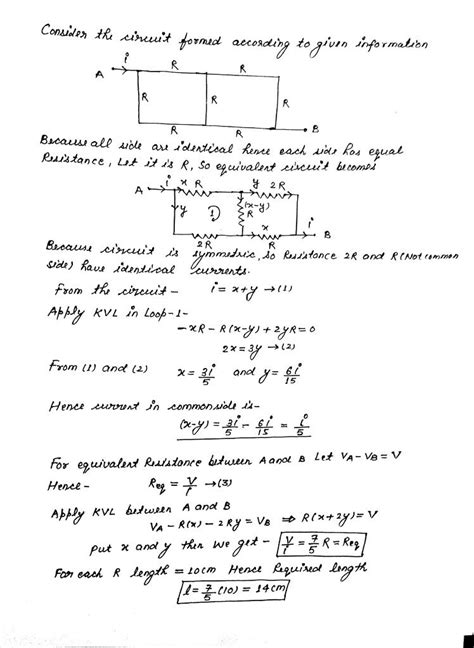 Consider the circuit formed according to given information
A i R R
R R R
R R B
Because all side are identical hence each side has equal
Resistance, Let it is R, So equivalent circuit becomes
A i x R y 2R
y 1 (x-y) R
2R x R i B
Because circuit is symmetric, so Resistance 2R and R (Not common
side) have identical currents.
From the circuit - i = x+y → (1)
Apply KVL in Loop-1-
-xR - R(x-y) + 2yR = 0
2x = 3y → (2)
From (1) and (2) x = 3i/5 and y = 6i/15
Hence current in common side is-
(x-y) = 3i/5 - 6i/15 = i/5
For equivalent Resistance between A and B Let VA - VB = V
Hence - Req = V/i → (3)
Apply KVL between A and B
VA - R(x) - 2Ry = VB ⇒ R(x+2y) = V
Put x and y then we get - V/i = 7/5 R = Req
For each R length = 10cm Hence Required length
l = 7/5 (10) = 14cm